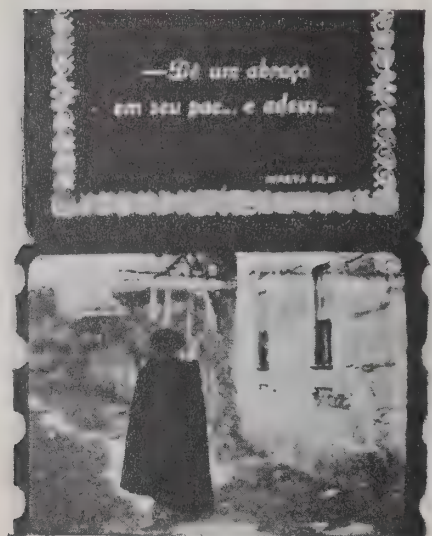 —Dê um abraço
em seu pae... e adeus...